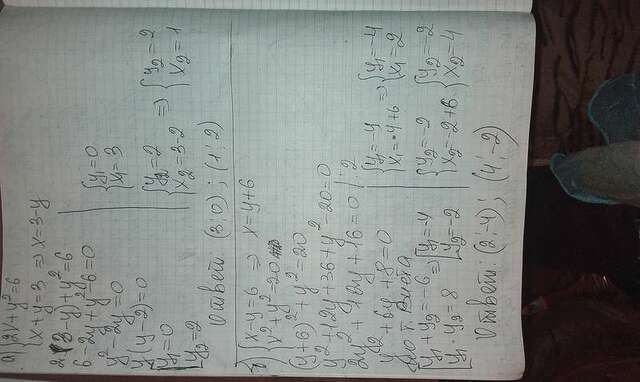 а) {2x+y²=6
{x+y=3 => x=3-y
2(3-y)+y²=6
6-2y+y²-6=0
y²-2y=0
y(y-2)=0
[y₁=0
[y₂=2
{y₁=0
{x₁=3
{y₂=2
{x₂=3-2 => {y₂=2
{x₂=1
Ответ: (3;0); (1;2)
б) {x-y=6 => x=y+6
{x²+y²=20
(y+6)²+y²=20
y²+12y+36+y²-20=0
2y²+12y+16=0 |:2
y²+6y+8=0
по т. Виета
[y₁+y₂=-6 => [y₁=-4
[y₁·y₂=8 [y₂=-2
{y₁=-4
{x₁=-4+6 => {y₁=-4
{x₁=2
{y₂=-2
{x₂=-2+6 {y₂=-2
{x₂=4
Ответ: (2;-4); (4;-2)